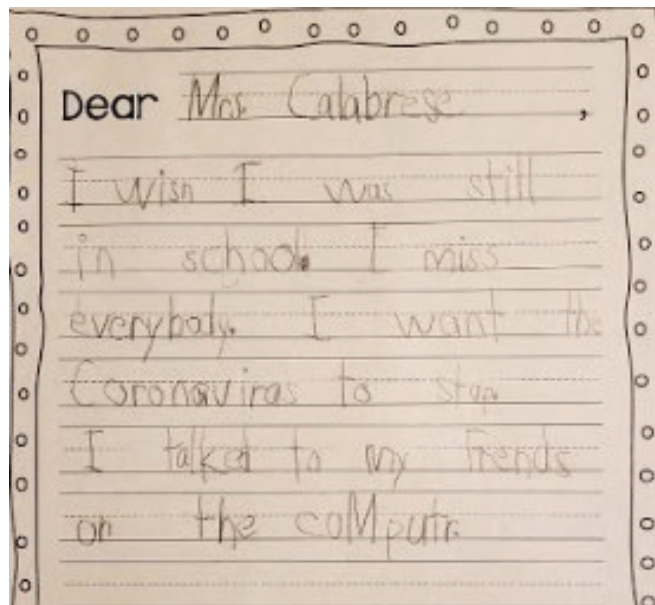 Dear Mrs. Calabrese,
I wish I was still
in school. I miss
everybody. I want the
Coronaviras to stop.
I talked to my frends
on the coMputr.